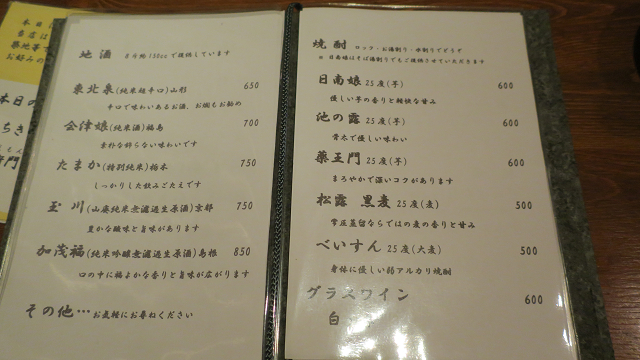 地酒 すべて約150ccで提供しています
東北泉(純米超辛口)山形 650
辛口で味わいあるお酒、お燗もお勧め
会津娘(純米酒)福島 700
素朴な飾らない味わいです
たまか(特別純米)栃木 750
しっかりした飲みごたえです
玉川(山廃純米無濾過生原酒)京都 750
豊かな酸味と旨味があります
加茂福(純米吟醸無濾過生原酒)島根 850
口の中に穏よかな香りと旨味が広がります
その他…お気軽にお尋ねください
焼酎 ロック・お湯割り・水割りでどうぞ
※ 日南娘はそば湯割りでもご提供させていただきます
日南娘 25度(芋) 600
優しい芋の香りと軽快な甘み
池の露 25度(芋) 600
骨太で優しい味わい
薬王門 25度(芋) 600
まろやかで深いコクがあります
松露 黒麦 25度(麦) 500
常圧蒸留ならではの麦の香りと甘み
べいすん 25度(大麦) 500
身体に優しい弱アルカリ焼酎
グラスワイン 600
白